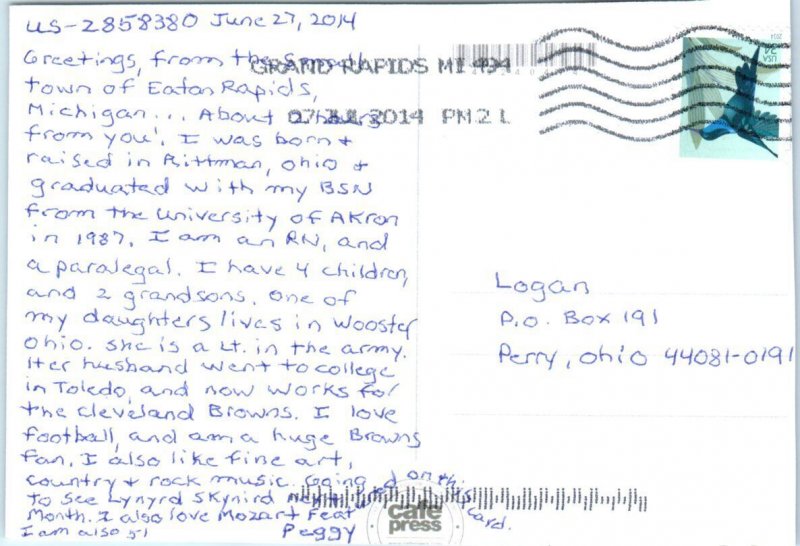 US-2858380 June 27, 2014
Greetings, from the Small
town of Eaton Rapids,
Michigan... About 2 hours
from you!. I was born +
raised in Rittman, Ohio +
graduated with my BSN
from the University of Akron
in 1987. I am an RN, and
a paralegal. I have 4 children,
and 2 grandsons. One of
my daughters lives in Wooster
Ohio. She is a Lt. in the army.
Her husband went to college
in Toledo, and now works for
the Cleveland Browns. I love
football, and am a huge Browns
fan. I also like fine art,
country + rock music. Going
to see Lynyrd Skynird next
Month. I also love Mozart Feat
on this card.
I am also 51 Peggy
GRAND RAPIDS MI 494
07 JUL 2014 PM 2 L
USA 34
2014
Logan
P.O. Box 191
Perry, Ohio 44081-0191
cafe
press